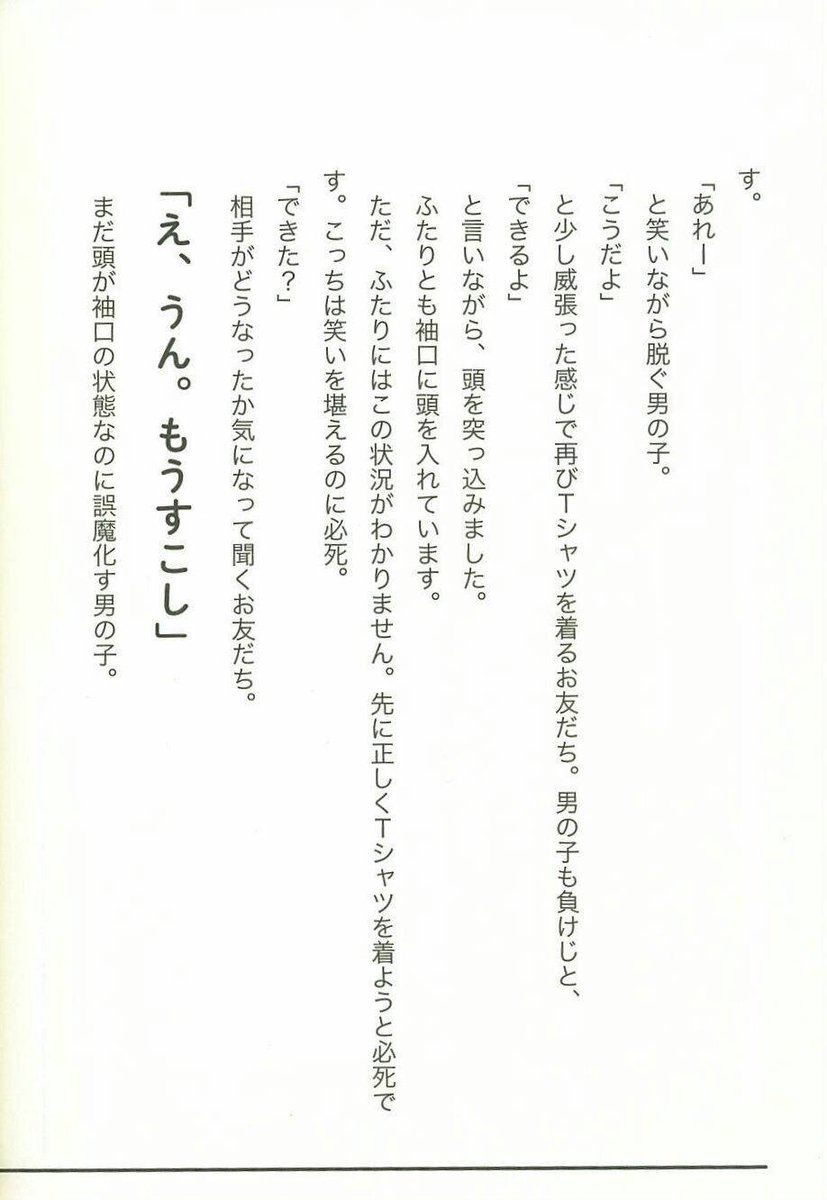 す。
「あれー」
と笑いながら脱ぐ男の子。
「こうだよ」
と少し威張った感じで再びTシャツを着るお友だち。男の子も負けじと、
「できるよ」
と言いながら、頭を突っ込みました。
ふたりとも袖口に頭を入れています。
ただ、ふたりにはこの状況がわかりません。先に正しくTシャツを着ようと必死で
す。こっちは笑いを堪えるのに必死。
「できた？」
相手がどうなったか気になって聞くお友だち。
「え、うん。もうすこし」
まだ頭が袖口の状態なのに誤魔化す男の子。